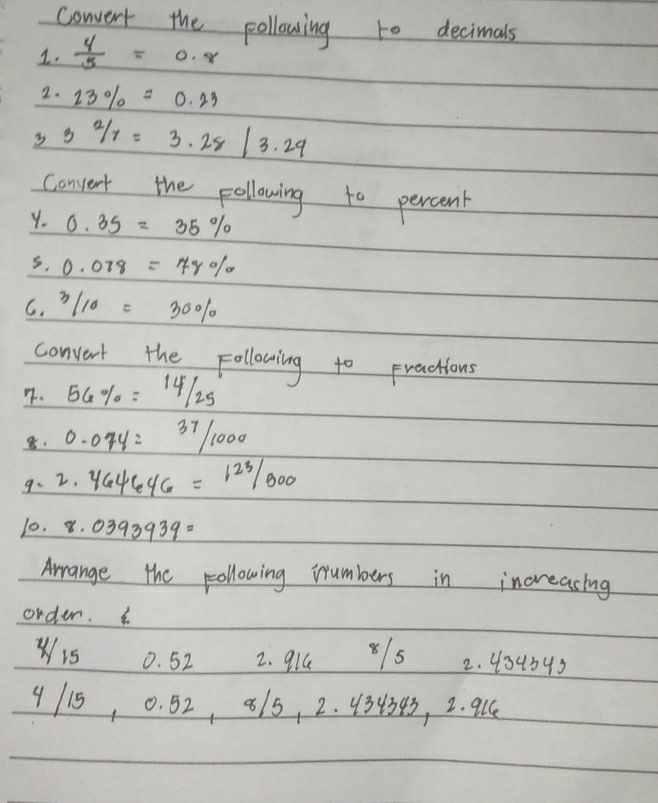 Convert the following to decimals
1. 4/5 = 0.8
2. 23% = 0.23
3 3 2/7 = 3.28 | 3.29
Convert the following to percent
4. 0.35 = 35%
5. 0.078 = 78%
6. 3/10 = 30%
Convert the following to fractions
7. 56% = 14/25
8. 0.074 = 37/1000
9. 2.464646 = 123/500
10. 8.0393939 =
Arrange the following numbers in increasing
order.
4/15 0.52 2.916 8/5 2.434343
4/15, 0.52, 8/5, 2.434343, 2.916